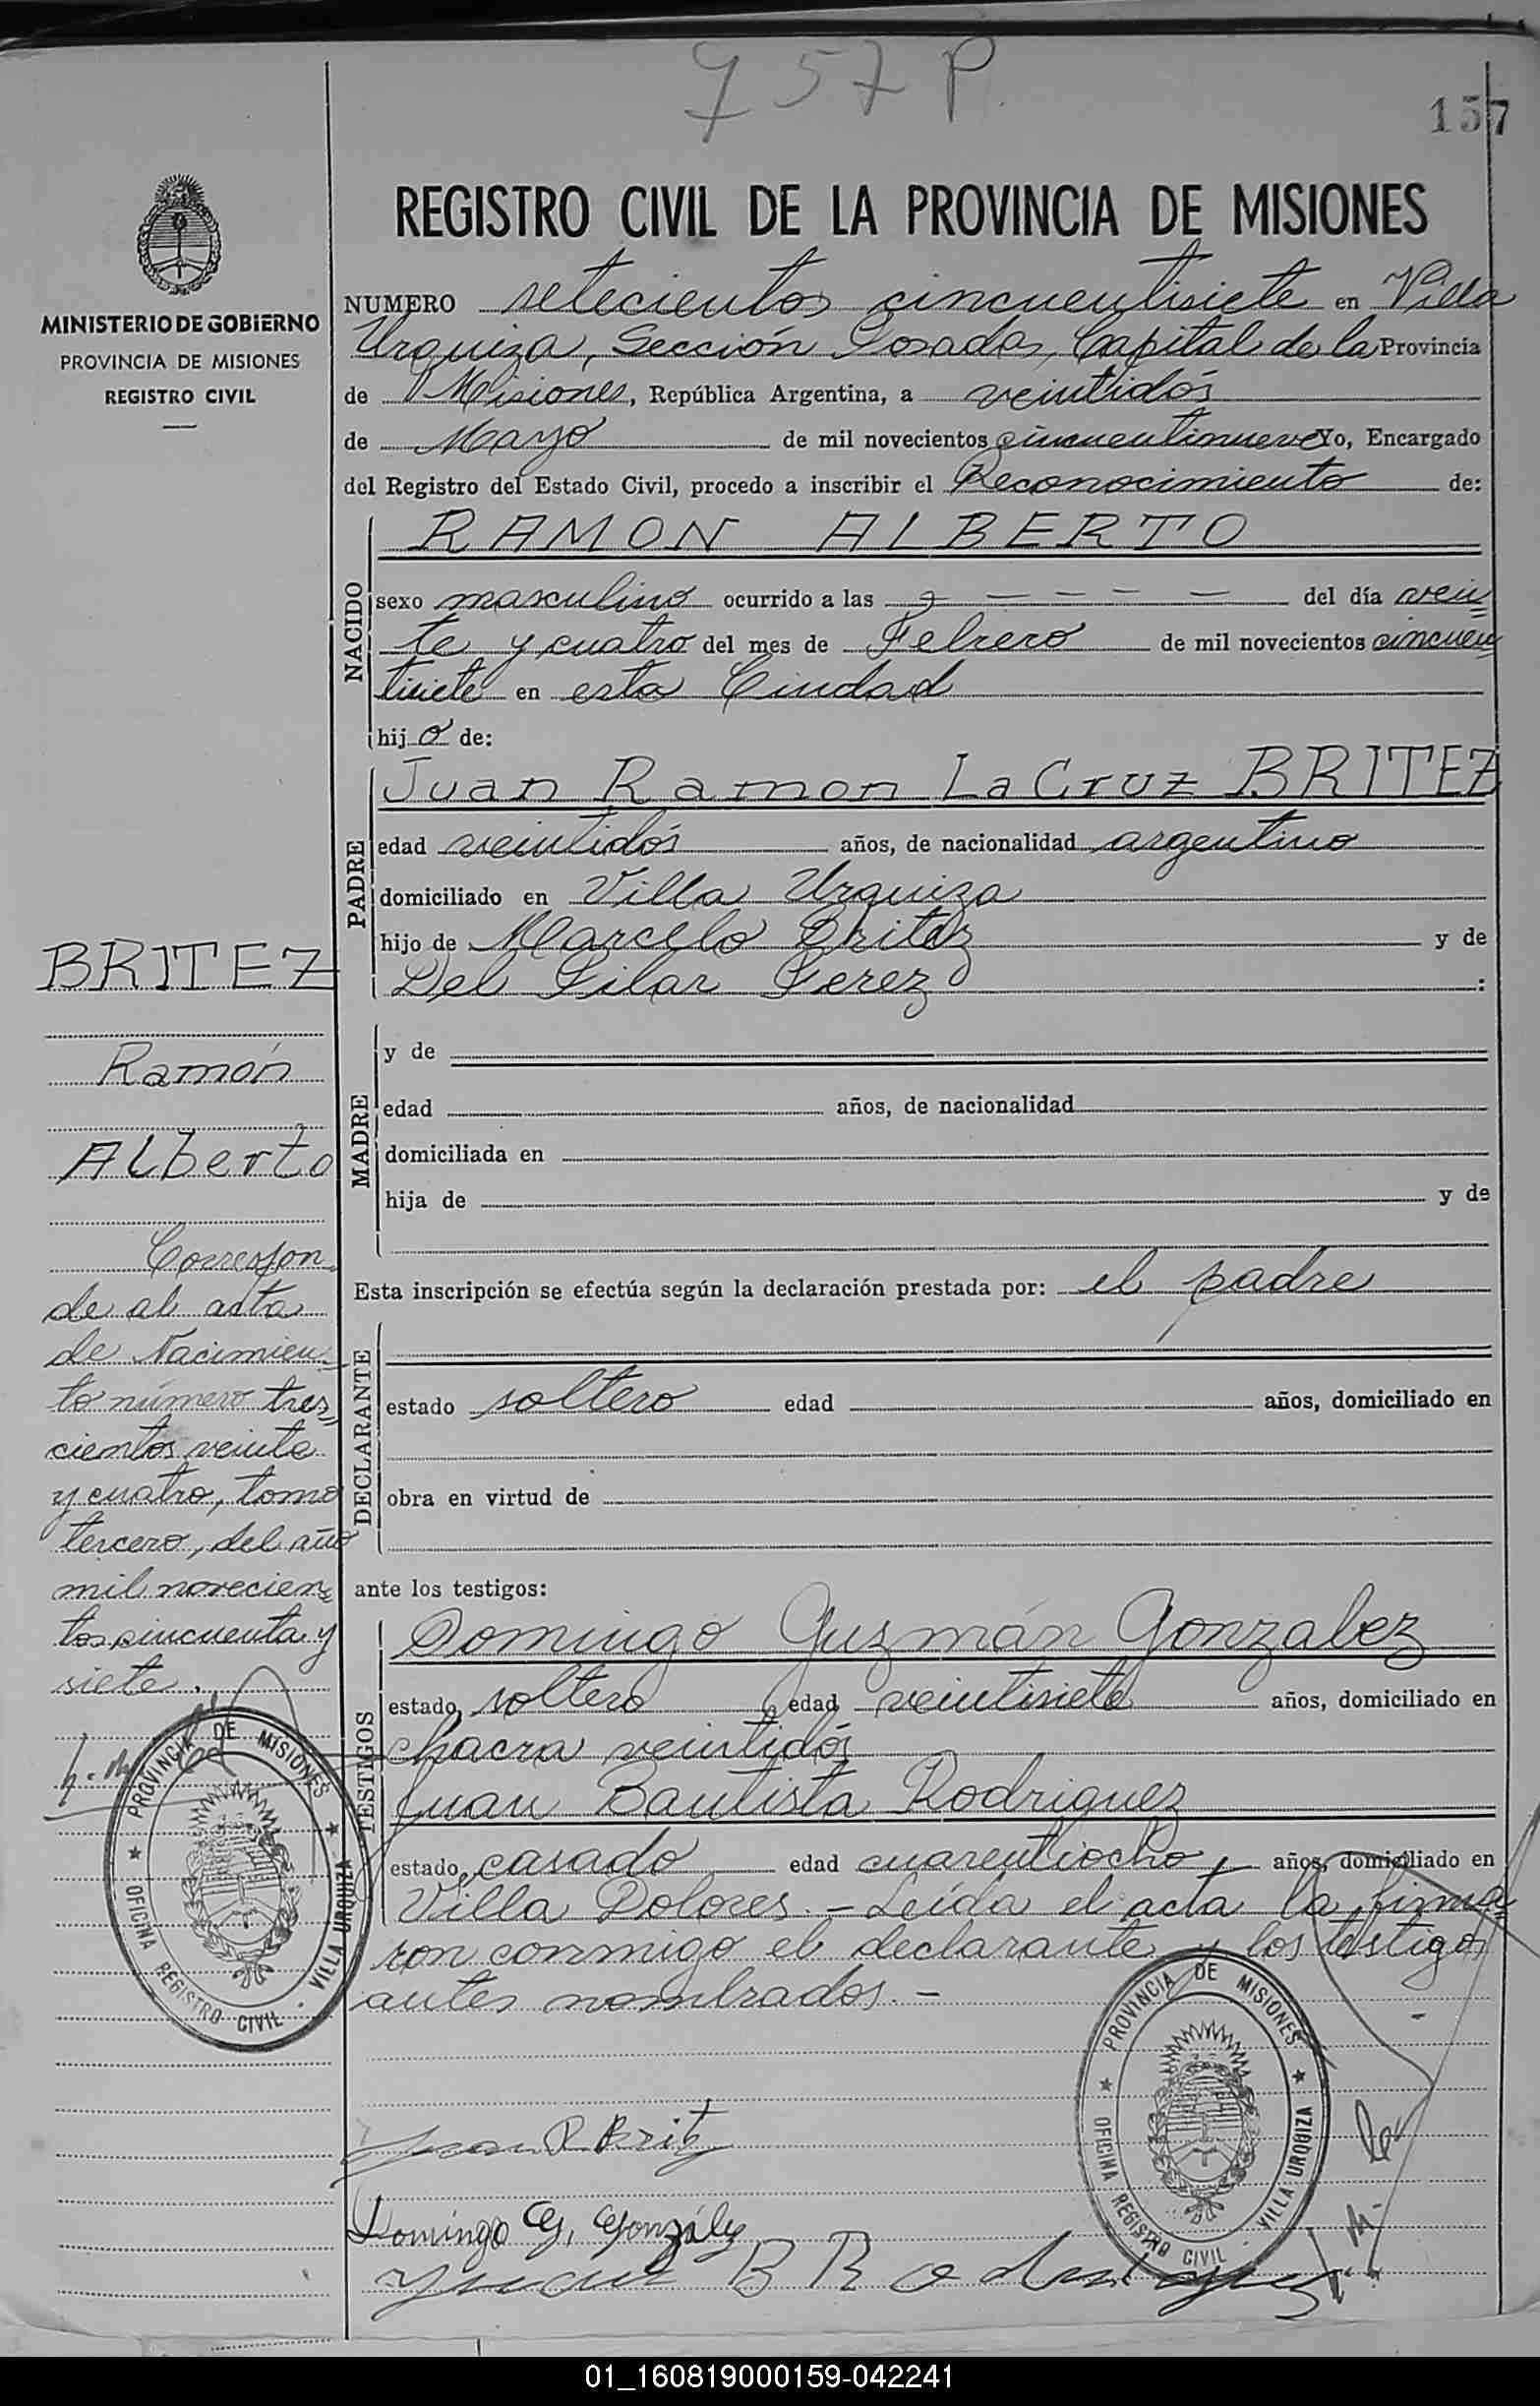 757 P.
157
MINISTERIO DE GOBIERNO
PROVINCIA DE MISIONES
REGISTRO CIVIL
REGISTRO CIVIL DE LA PROVINCIA DE MISIONES
NUMERO setecientos cincuentisiete en Villa
Urquiza, Sección Posadas, Capital de la Provincia
de Misiones, República Argentina, a veintidós
de Mayo de mil novecientos cincuentinueve Yo, Encargado
del Registro del Estado Civil, procedo a inscribir el Reconocimiento de:
NACIDO
RAMON ALBERTO
sexo masculino ocurrido a las - - - - - del día vein=
te y cuatro del mes de Febrero de mil novecientos cincuen=
tisiete en esta Ciudad
hijo de:
PADRE
Juan Ramon La Cruz BRITEZ
edad veintidós años, de nacionalidad argentino
domiciliado en Villa Urquiza
hijo de Marcelo Britez y de
Del Pilar Perez :
MADRE
y de
edad años, de nacionalidad
domiciliada en
hija de y de
Esta inscripción se efectúa según la declaración prestada por: el padre
DECLARANTE
estado soltero edad años, domiciliado en
obra en virtud de
ante los testigos:
TESTIGOS
Domingo Guzmán Gonzalez
estado soltero edad veintisiete años, domiciliado en
chacra veintidós
Juan Bautista Rodriguez
estado casado edad cuarentiocho, años, domiciliado en
Villa Dolores.- Leída el acta la firma=
ron conmigo el declarante y los testigos
antes nombrados.-
BRITEZ
Ramón
Alberto
Correspon=
de al acta
de Nacimien=
to número tres=
cientos veinte
y cuatro, tomo
tercero, del año
mil novecien=
tos cincuenta y
siete.
PROVINCIA DE MISIONES
OFICINA REGISTRO CIVIL - VILLA URQUIZA
PROVINCIA DE MISIONES
OFICINA REGISTRO CIVIL - VILLA URQUIZA
Juan R Britez
Domingo G. González
Juan B Rodriguez
01_160819000159-042241